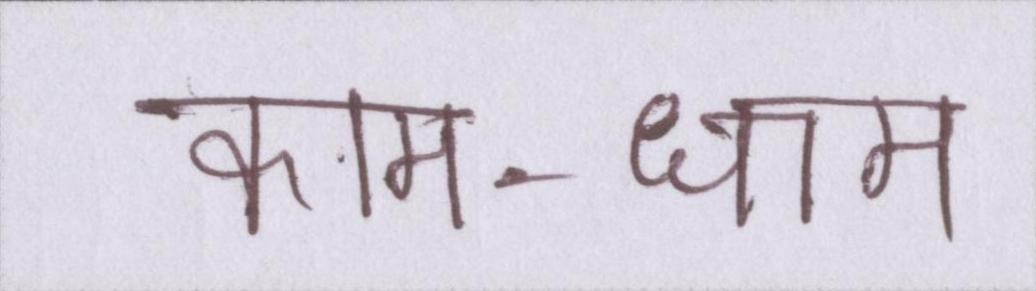 काम-धाम